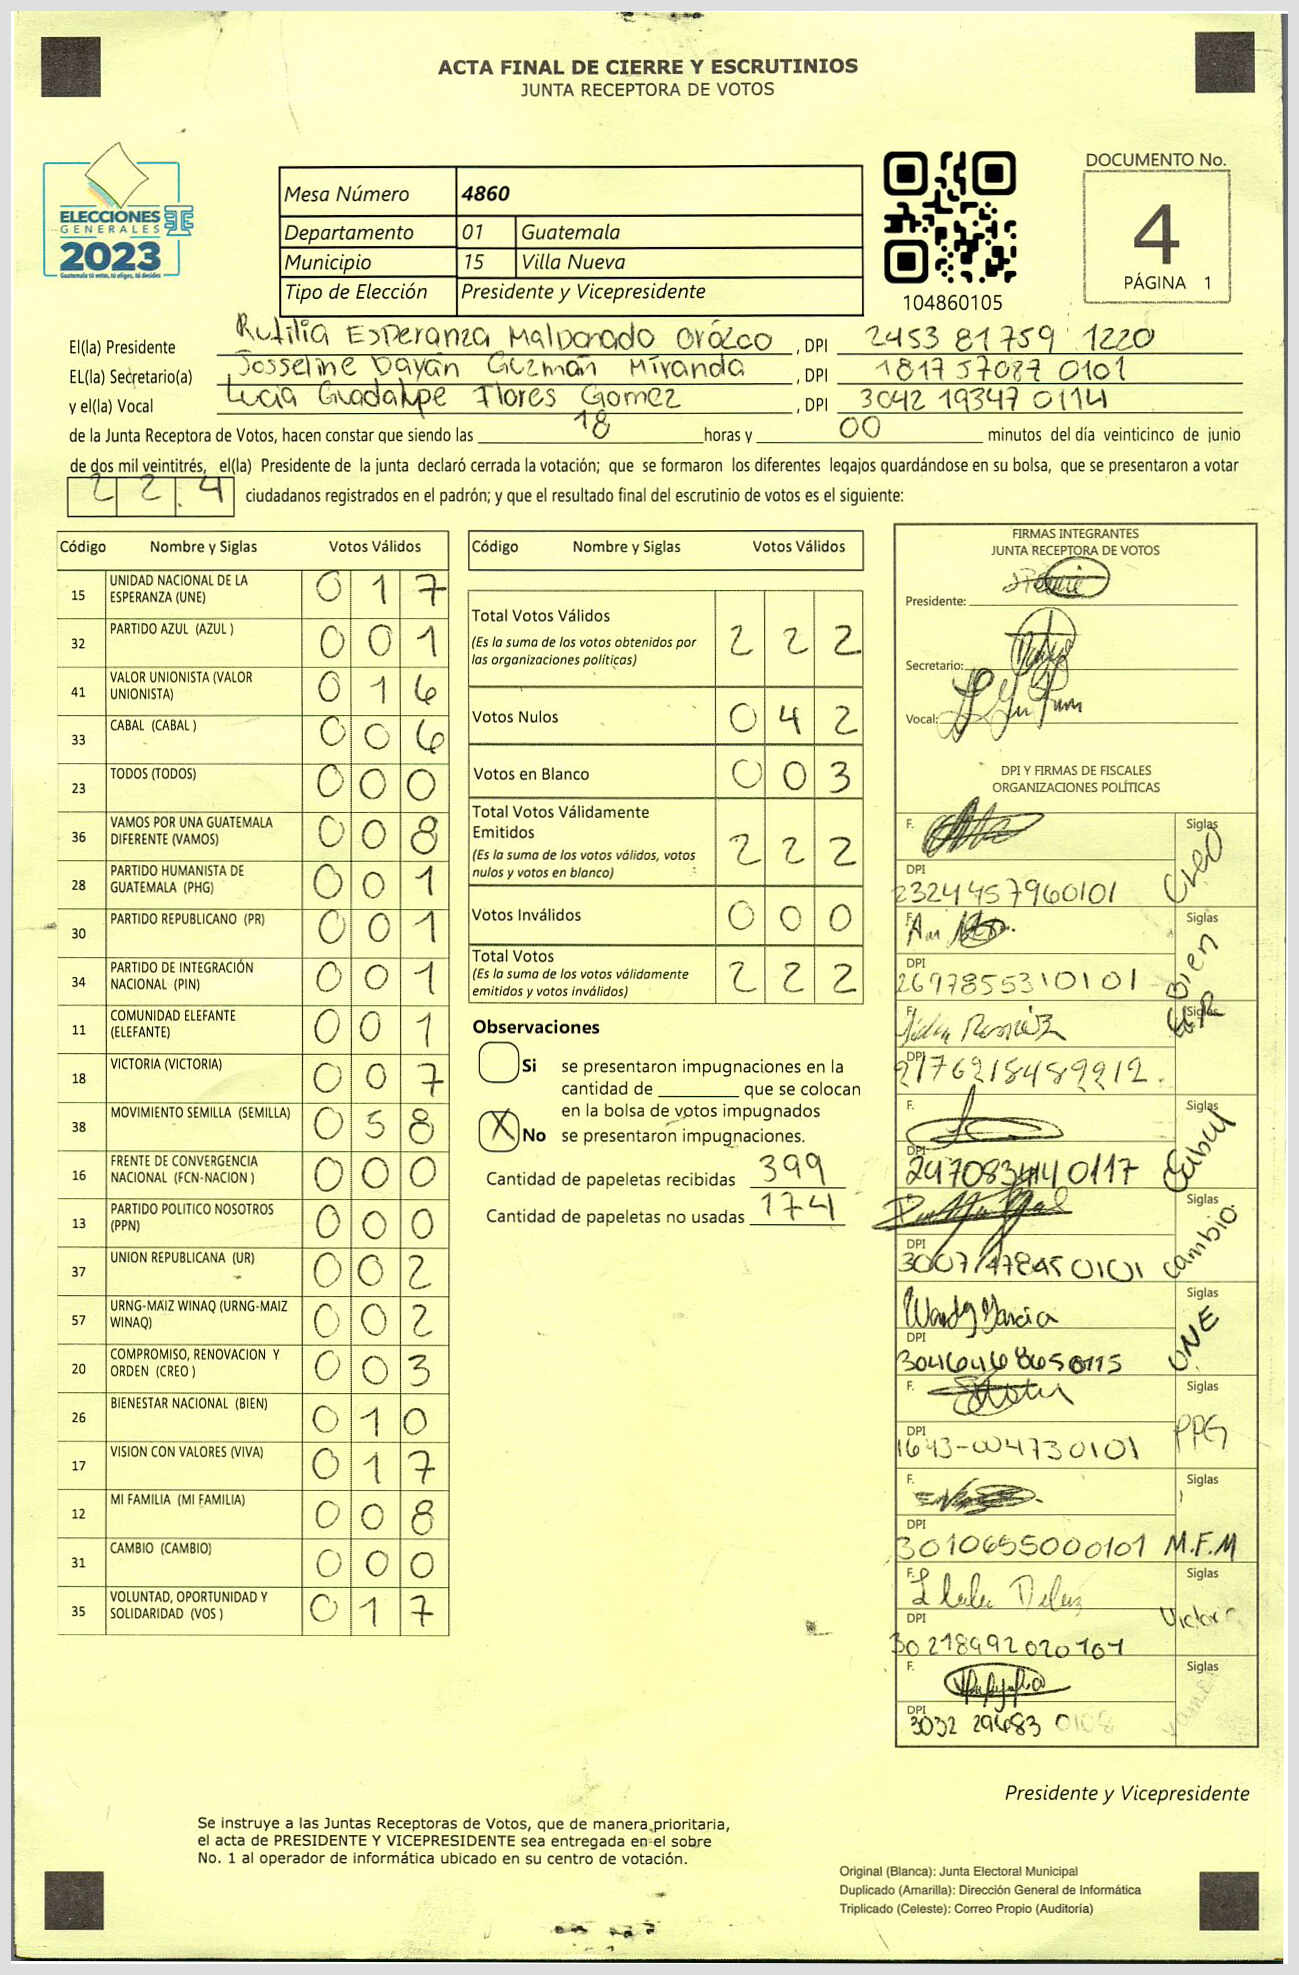 ACTA FINAL DE CIERRE Y ESCRUTINIOS
JUNTA RECEPTORA DE VOTOS
ELECCIONES
GENERALES
2023
Mesa Número 4860
Departamento 01 Guatemala
Municipio 15 Villa Nueva
Tipo de Elección Presidente y Vicepresidente
104860105
DOCUMENTO No.
4
PÁGINA 1
El(la) Presidente Rutilia Esperanza Maldonado Orózco , DPI 2453 81759 1220
EL(la) Secretario(a) Josseline Dayán Guzmán Miranda , DPI 1817 57087 0101
y el(la) Vocal Lucia Guadalupe Flores Gomez , DPI 3042 19347 0114
de la Junta Receptora de Votos, hacen constar que siendo las 18 horas y 00 minutos del día veinticinco de junio
de dos mil veintitrés, el(la) Presidente de la junta declaró cerrada la votación; que se formaron los diferentes legajos guardándose en su bolsa, que se presentaron a votar
2 2 4 ciudadanos registrados en el padrón; y que el resultado final del escrutinio de votos es el siguiente:
Código Nombre y Siglas Votos Válidos
15 UNIDAD NACIONAL DE LA ESPERANZA (UNE) 0 1 7
32 PARTIDO AZUL (AZUL ) 0 0 1
41 VALOR UNIONISTA (VALOR UNIONISTA) 0 1 6
33 CABAL (CABAL ) 0 0 6
23 TODOS (TODOS) 0 0 0
36 VAMOS POR UNA GUATEMALA DIFERENTE (VAMOS) 0 0 8
28 PARTIDO HUMANISTA DE GUATEMALA (PHG) 0 0 1
30 PARTIDO REPUBLICANO (PR) 0 0 1
34 PARTIDO DE INTEGRACIÓN NACIONAL (PIN) 0 0 1
11 COMUNIDAD ELEFANTE (ELEFANTE) 0 0 1
18 VICTORIA (VICTORIA) 0 0 7
38 MOVIMIENTO SEMILLA (SEMILLA) 0 5 8
16 FRENTE DE CONVERGENCIA NACIONAL (FCN-NACION ) 0 0 0
13 PARTIDO POLITICO NOSOTROS (PPN) 0 0 0
37 UNION REPUBLICANA (UR) 0 0 2
57 URNG-MAIZ WINAQ (URNG-MAIZ WINAQ) 0 0 2
20 COMPROMISO, RENOVACION Y ORDEN (CREO ) 0 0 3
26 BIENESTAR NACIONAL (BIEN) 0 1 0
17 VISION CON VALORES (VIVA) 0 1 7
12 MI FAMILIA (MI FAMILIA) 0 0 8
31 CAMBIO (CAMBIO) 0 0 0
35 VOLUNTAD, OPORTUNIDAD Y SOLIDARIDAD (VOS ) 0 1 7
Código Nombre y Siglas Votos Válidos
Total Votos Válidos 2 2 2
(Es la suma de los votos obtenidos por
las organizaciones políticas)
Votos Nulos 0 4 2
Votos en Blanco 0 0 3
Total Votos Válidamente
Emitidos 2 2 2
(Es la suma de los votos válidos, votos
nulos y votos en blanco)
Votos Inválidos 0 0 0
Total Votos 2 2 2
(Es la suma de los votos válidamente
emitidos y votos inválidos)
Observaciones
Si se presentaron impugnaciones en la
cantidad de ________ que se colocan
en la bolsa de votos impugnados
X No se presentaron impugnaciones.
Cantidad de papeletas recibidas 399
Cantidad de papeletas no usadas 174
FIRMAS INTEGRANTES
JUNTA RECEPTORA DE VOTOS
Presidente:
Secretario:
Vocal:
DPI Y FIRMAS DE FISCALES
ORGANIZACIONES POLÍTICAS
F. Siglas
DPI Creo
2324457960101
F. Siglas
DPI Bien
2697855310101
F. Siglas
DPI
2176218489212.
F. Siglas
DPI Cabal
2470834140117
Siglas
DPI cambio
3007147845 0101
Wendy Garcia Siglas
DPI UNE
3046468650115
F. Siglas
DPI PPG
1643-004730101
F. Siglas
DPI
3010655000101 M.F.M
F. Siglas
DPI Victor
3021899202 0101
F. Siglas
DPI
3032 29683 0108
Presidente y Vicepresidente
Se instruye a las Juntas Receptoras de Votos, que de manera prioritaria,
el acta de PRESIDENTE Y VICEPRESIDENTE sea entregada en el sobre
No. 1 al operador de informática ubicado en su centro de votación.
Original (Blanca): Junta Electoral Municipal
Duplicado (Amarilla): Dirección General de Informática
Triplicado (Celeste): Correo Propio (Auditoría)